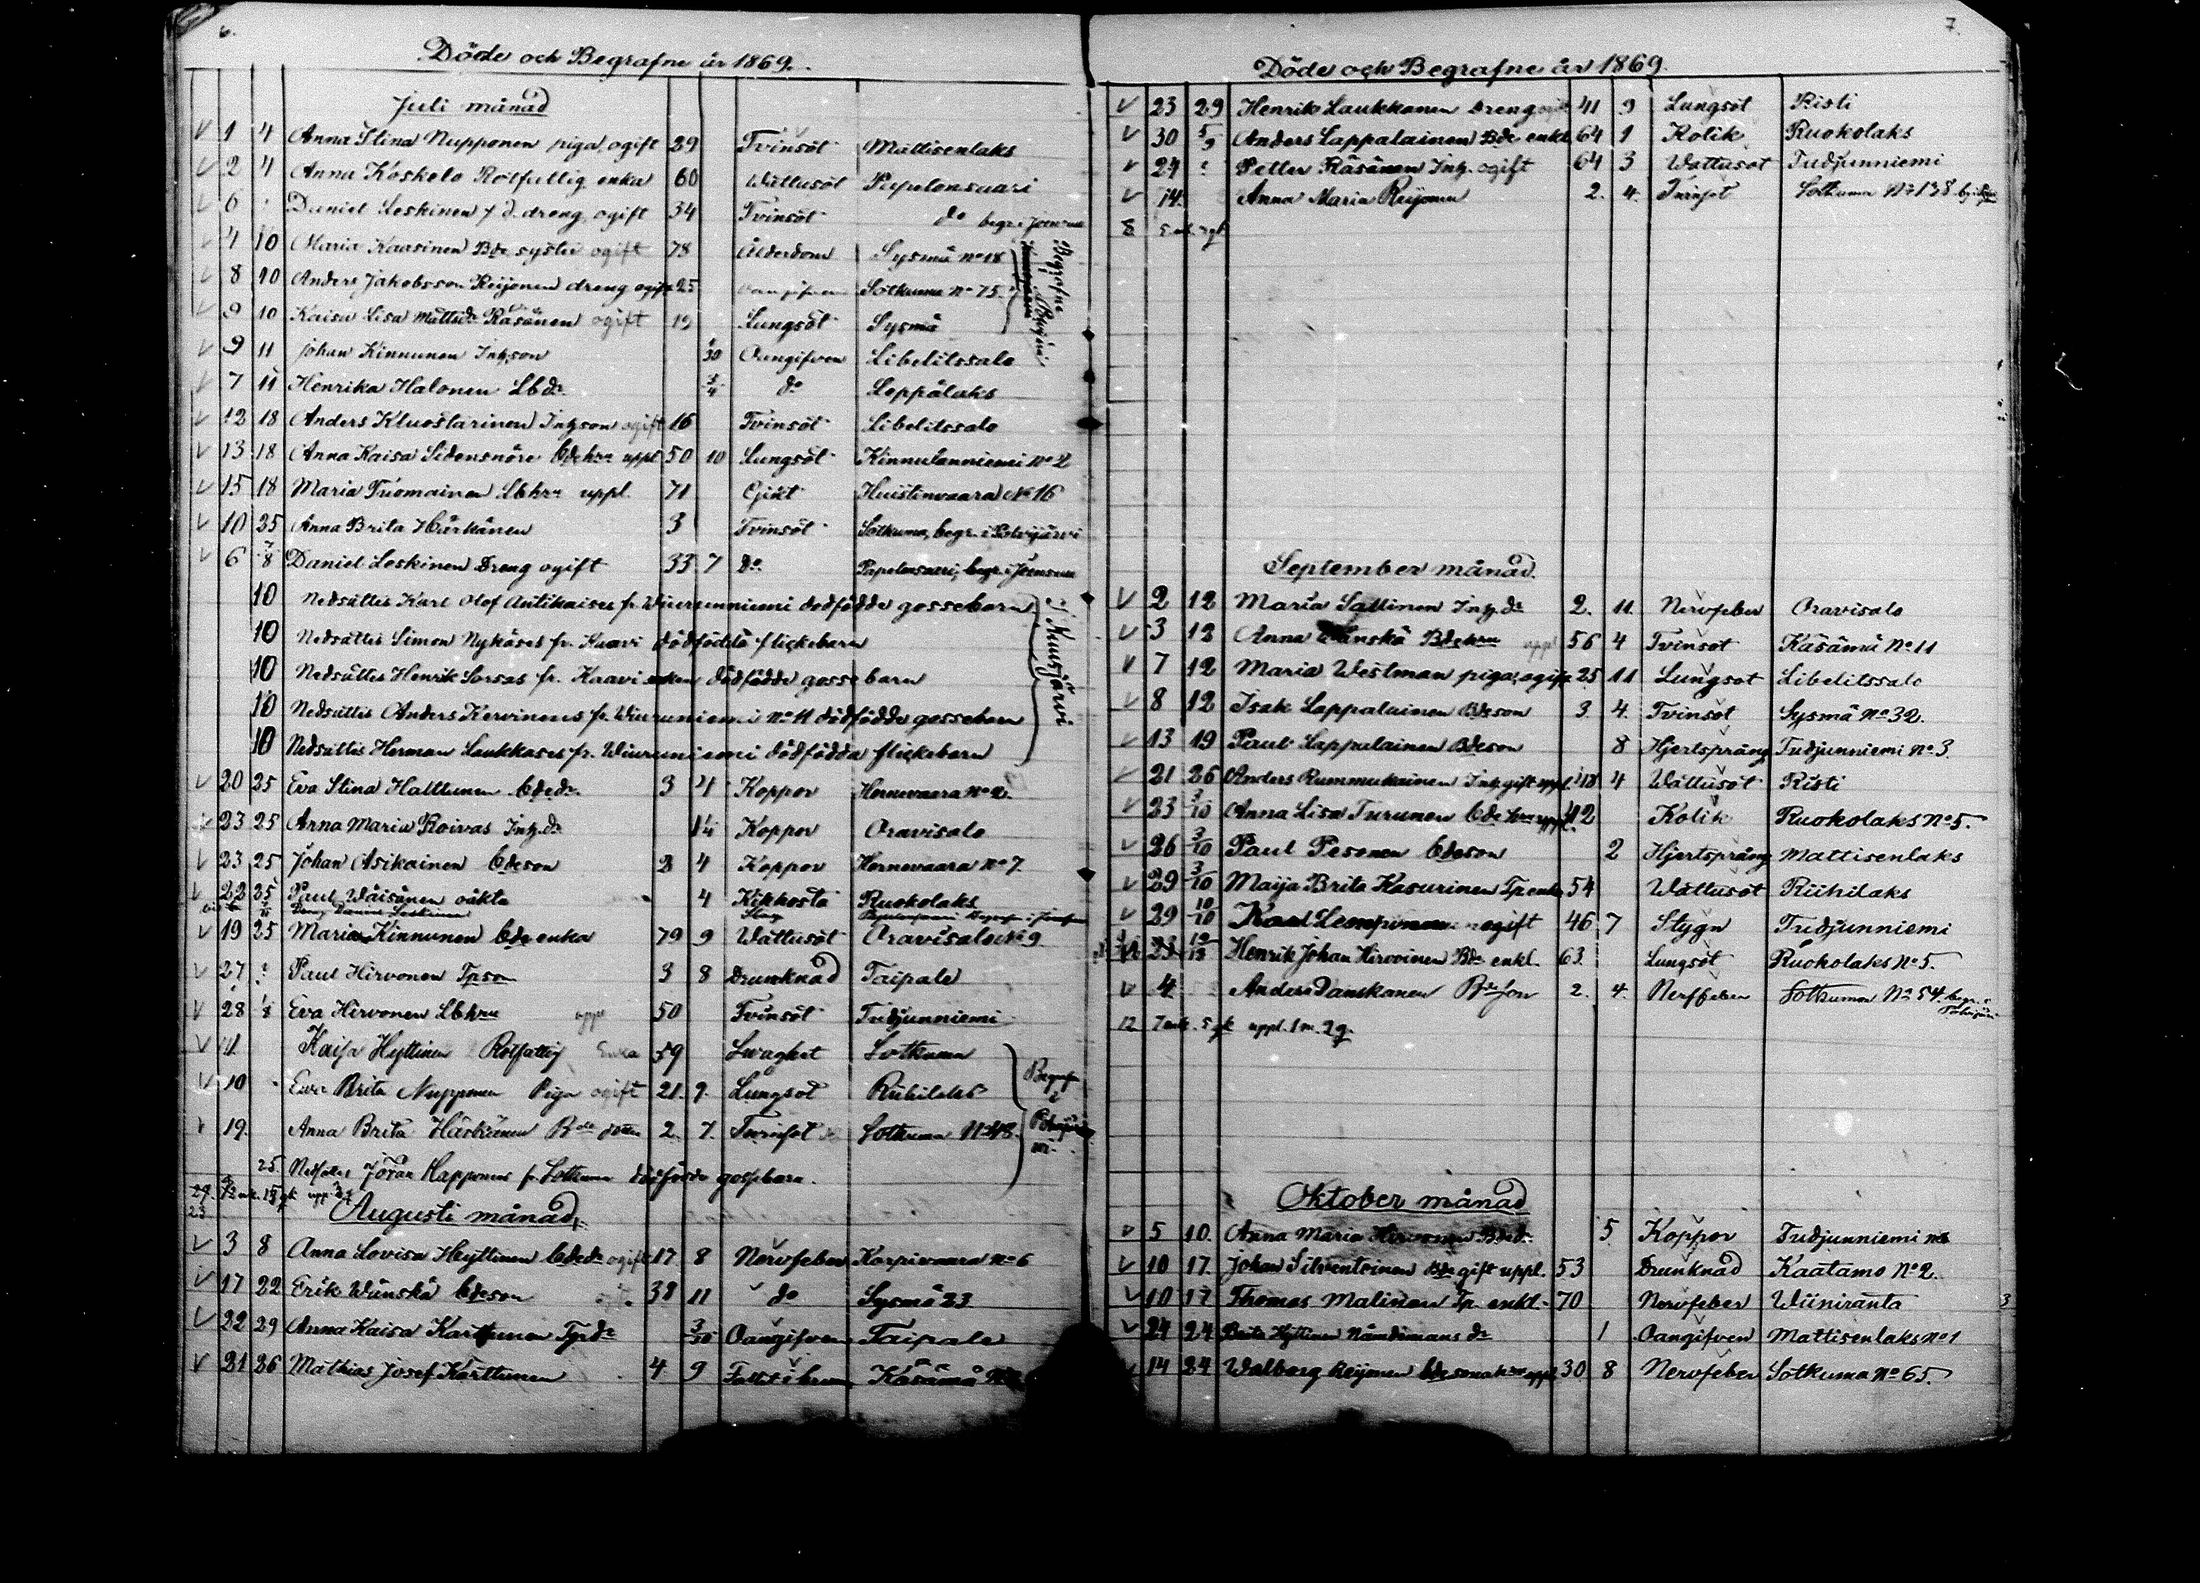 6.
Döde och Begrafne år 1869.
Juli månad
1 4 Anna Stina Nupponen piga ogift 29 Tvinsot Mattisenlaks
2 4 Anna Koskelo Rotfattig enka 60 Wattusot Papelonsaari
6 Daniel Leskinen f. d. dreng ogift 34 Tvinsot do begr. i Joensuu
4 10 Maria Kaasinen Bde syster ogift 78 Ålderdom Sysmä No 18
8 10 Anders Jakobsson Reijonen dreng ogift 25 oangifven Sotkuma No 75.
9 10 Kaisa Lisa Mattsdr Räsänen ogift 19 Lungsot Sysmä
Begrafne i
9 11 Johan Kinnunen Inhson 1/30 Oangifven Libelitssalo
7 11 Henrika Halonen Lbdr 1/4 do Leppälaks
12 18 Anders Kluostarinen Inhson ogift 16 Tvinsot Libelitssalo
13 18 Anna Kaisa Sidensnöre bdehru uppl 50 10 Lungsot Kinnulanniemi No 2
15 18 Maria Tuomainen Lbhru uppl. 71 Gikt Huistinvaara No 16
10 25 Anna Brita Härkänen 3 Tvinsot Sotkuma, begr. i Polvijärvi
6 7/8 Daniel Leskinen Dreng ogift 33 7 Do Papelonsaari, begr. i Joensuu
10 Nedsattes Karl Olof Antikaises fr. Wiurunniemi dödfödde gossebarn
10 Nedsattes Simon Nykäses fr. Kaavi dödfödda flickebarn
10 Nedsattes Henrik Sorsas fr. Kaavi dödfödde gossebarn
10 Nedsattes Anders Kervinens fr. Wiuruniemi No 11 dödfödde gossebarn
10 Nedsattes Herman Laukkases fr. Wiuruniemi dödfödda flickebarn
i Kuusjärvi
20 25 Eva Stina Halttunen bdedr. 3 4 Koppor Hornevaara No 2.
23 25 Anna Maria Roivas Inh.dr 1/4 Koppor Oravisalo
23 25 Johan Asikainen bdeson 2 4 Koppor Hornevaara No 7.
22 25 Paul Wäisänen oäkta 4 Kikhosta Ruokolaks
19 25 Maria Kinnunen bde enka 79 9 Wattusot Oravisalo No 9
27 Paul Hirvonen Tpson 3 8 Drunknad Taipale
28 1/8 Eva Hirvonen Lbhru uppl 50 Tvinsot Tudjunniemi
11 Kaisa Hyttinen Rotfattig Enka 59 Svaghet Sotkuma
10 Eva Brita Nupponen Piga ogift 21. 9. Lungsot Riihilaks
19. Anna Brita Häskänen Bde dotter 2. 7. Tvinsot Sotkuma No 48.
Begrafne i
25. Nedsattes Jöran Kapponens fr. Sotkuma dödfödde gossebarn.
Augusti månad
3 8 Anna Lovisa Heyttinen bdedr ogift 17 8 Nervfeber Karpivaara No 6
17 22 Erik Wänskä bdeson 38 11 do Sysmä 23
22 29 Anna Kaisa Karttunen Tpdr 3/30 Oangifven Taipale
21 26 Mathias Josef Karttunen 4 9 Fallit i brunn Käsämä No
7
Döde och Begrafne år 1869.
23 29 Henrik Laukkanen Dreng ogift 41 9 Lungsot Risti
30 5/9 Anders Lappalainen Bde enkl 64 1 Kolik Ruokolaks
24 Petter Räsänen Inh. ogift 64 3 Wattusot Tudjunniemi
14. Anna Maria Reijonen 2. 4. Tvinsot Sotkuma No 138
8
September månad.
2 12 Maria Sallinen Inh.dr 2. 11. Nervfeber Oravisalo
3 12 Anna Wänskä Bdehru uppl 56 4 Tvinsot Käsämä No 11
7 12 Maria Westman piga ogift 25 11 Lungsot Libelitssalo
8 12 Isak Lappalainen Bdeson 3. 4. Tvinsot Sysmä No 32.
13 19 Paul Lappalainen Bdeson 8 Hjertspräng Tudjunniemi No 3
21 26 Anders Rummukainen Inh gift uppl. 48 4 Wattusot Risti
23 3/10 Anna Lisa Turunen bde hru uppl. 42 Kolik Ruokolaks No 5.
26 3/10 Paul Pesonen bdeson 2 Hjertspräng Mattisenlaks
29 3/10 Maija Brita Kasurinen Tp enka 54 Wattusot Riihilaks
29 10/10 Karl Lemponen ogift 46 7 Stygn Tudjunniemi
23 Henrik Johan Hirvoinen Bde enkl. 63. Lungsot Ruokolaks No 5.
4. Anders Danskanen Bdeson 2. 4. Nerffeber Sotkuma No 54. begr. i
12 7 mk. 5 qk uppl. 1 m. 2 q.
Oktober månad
5 10. Anna Maria Hirvonen Bdedr. 5 Koppor Tudjunniemi
10 17. Johan Silventoinen Bde gift uppl. 53 Drunknad Kaatamo No 2.
10 17 Thomas Malinen Tp. enkl. 70 Nervfeber Wiiniranta
24 24 Brita Hyttinen Nämdemans dr 1 Oangifven Mattisenlaks No 1
14 24 Walborg Reijonen bdesonshru uppl 30 8 Nervfeber Sotkuma No 65.